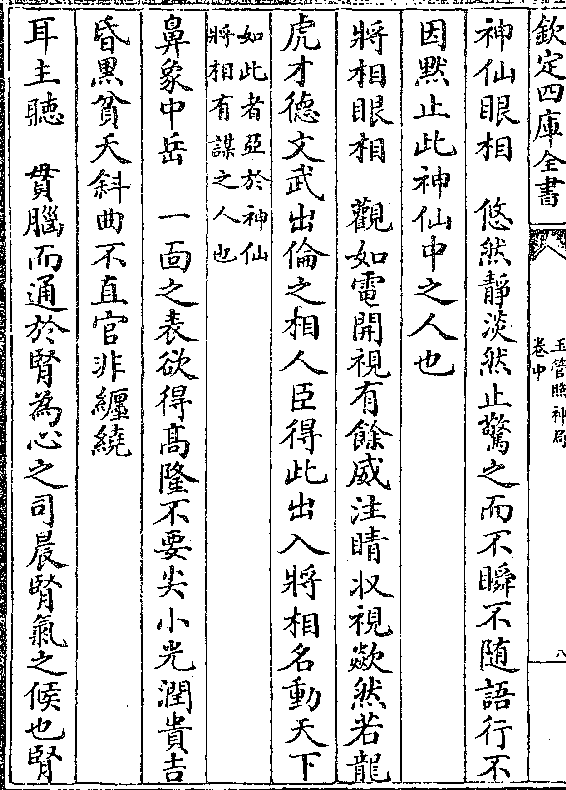 欽定四庫全書
玉管照神局
卷中
八
神仙眼相　悠然靜淡然止驚之而不瞬不随語行不
因黙止此神仙中之人也
將相眼相　觀如電開視有餘威注睛収視歘然若龍
虎才德文武出倫之相人臣得此出入將相名動天下
如此者亞於神仙
將相有謀之人也
鼻象中岳　一面之表欲得髙隆不要尖小光潤貴吉
昏黒貧夭斜曲不直官非纏繞
耳主聽　貫腦而通於腎為心之司晨腎氣之候也腎